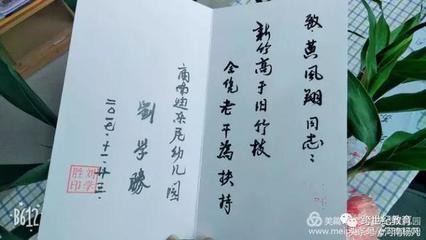 致黄凤翔同志：
新竹高于旧竹枝
全凭老干为扶持
商南迪东尼幼儿园
劉学勝
二〇一七.十一.廿三.
刘学
胜印
B612
美篇
跨世纪教育